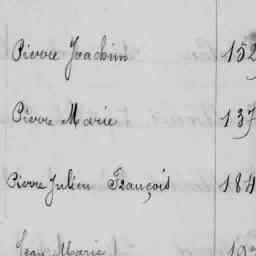 Pierre Joachim 152
Pierre Marie 137
Pierre Julien François 184
Jean Marie